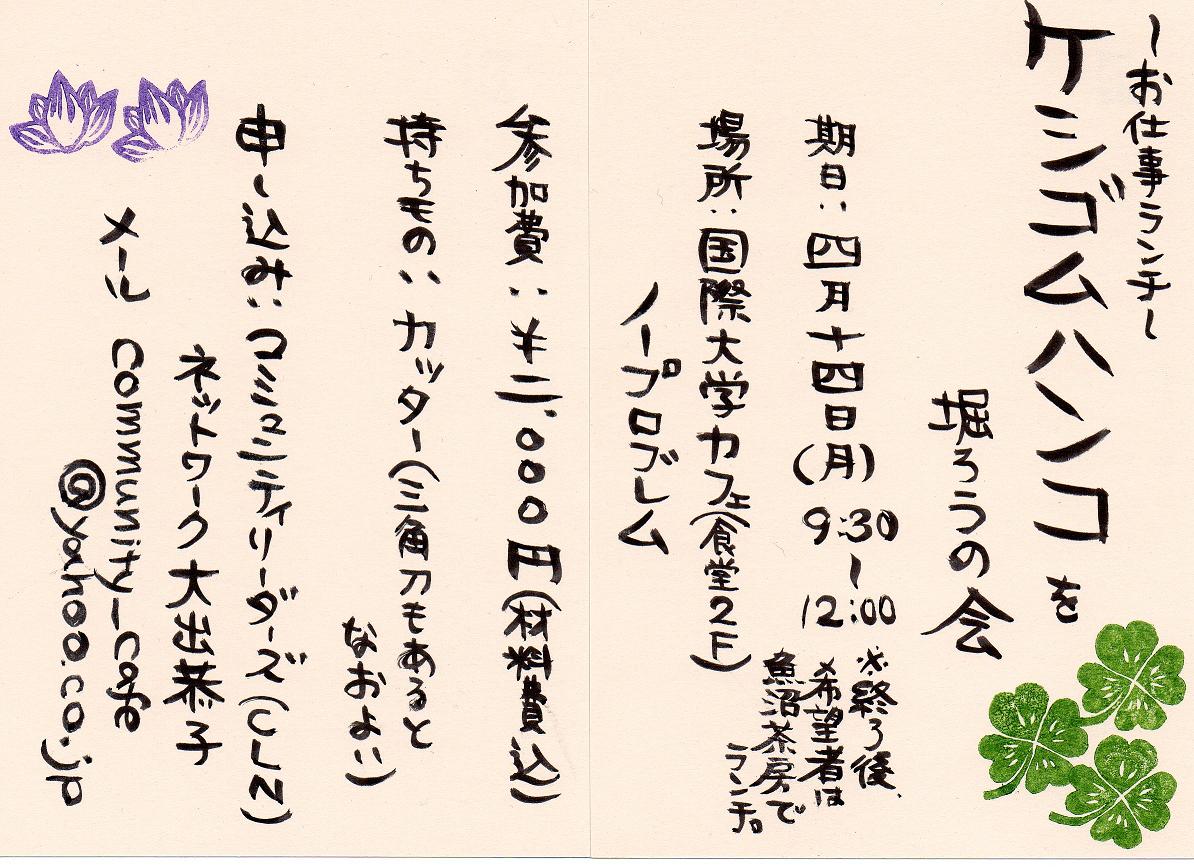 ～お仕事ランチ～
ケシゴムハンコを
堀ろうの会
期日：四月十四日(月) 9:30～12:00
※終了後、
希望者は
魚沼茶房で
ランチ。
場所：国際大学カフェ(食堂2F)
ノープロブレム
参加費：¥二、000円(材料費込)
持ちもの：カッター(三角刀もあると
なおよい)
申し込み：コミュニティリーダーズ(CLN)
ネットワーク大出恭子
メール community_cafe
@yahoo.co.jp